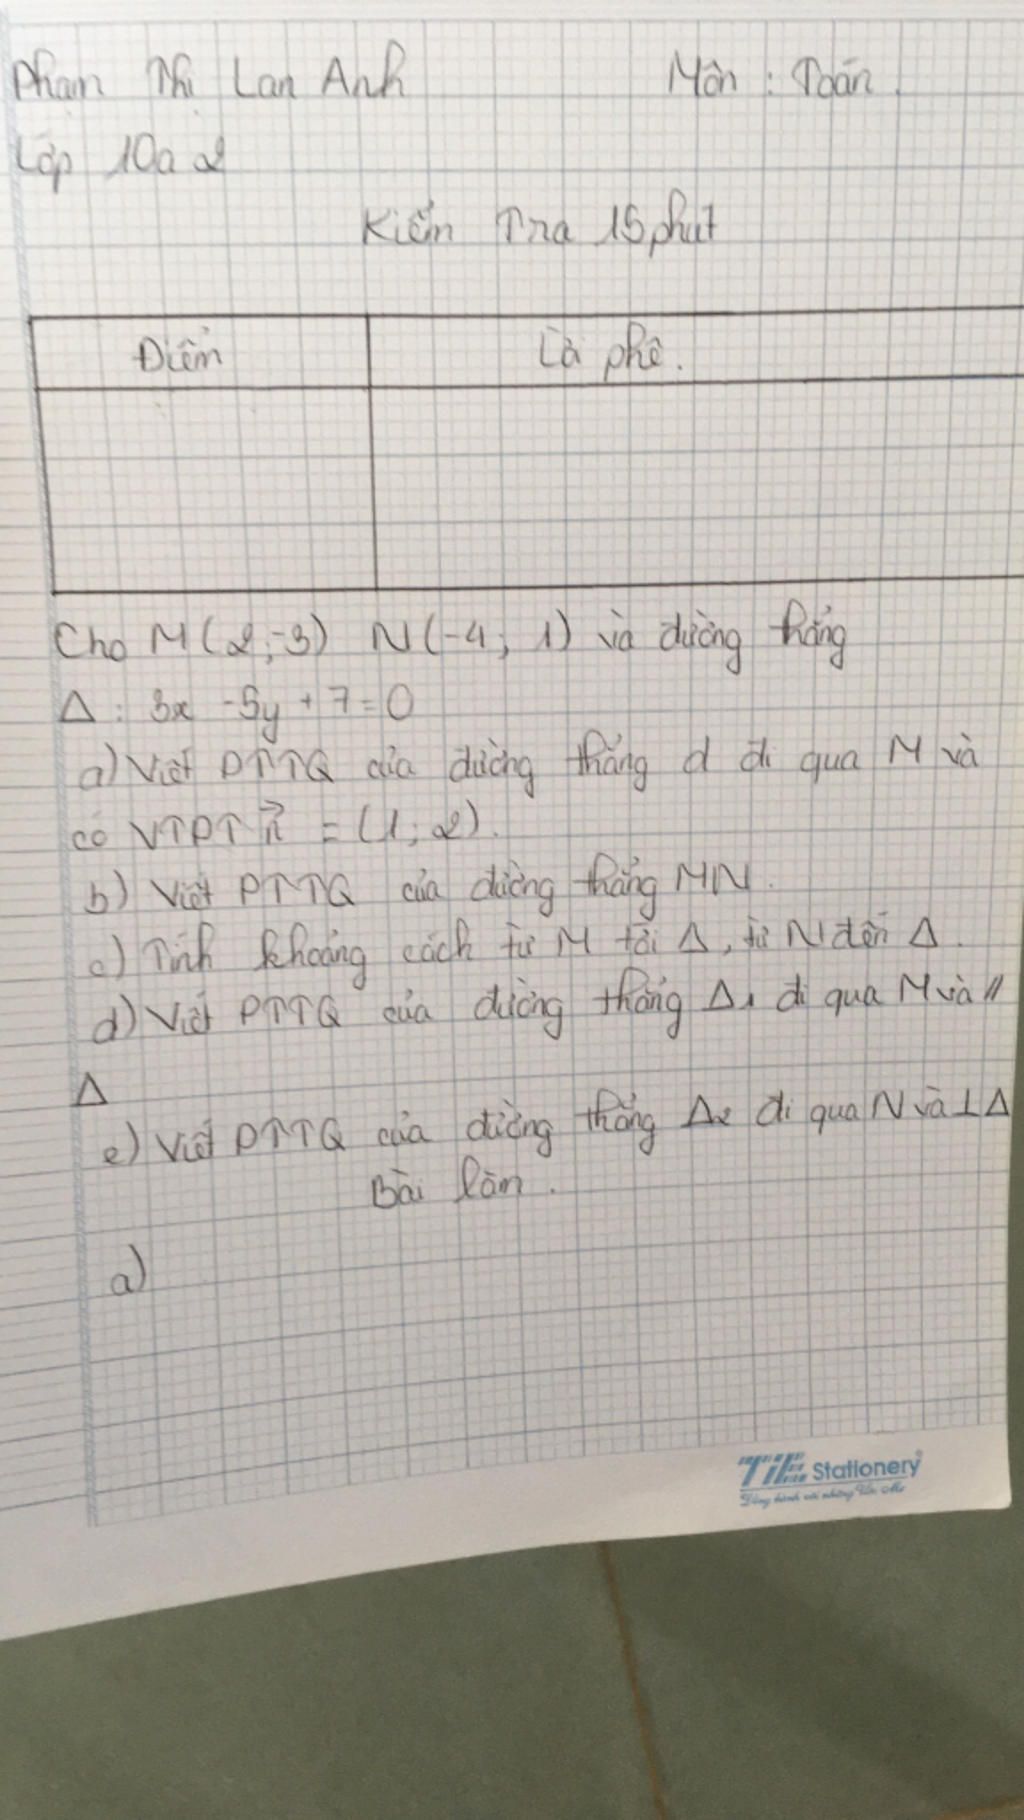 Phạm Thị Lan Anh Môn : Toán.
Lớp 10a2
Kiểm Tra 15 phút
Điểm Lời phê.
Cho M(2;-3) N(-4; 1) và đường thẳng
Δ : 3x -5y + 7 = 0
a) Viết PTTQ của đường thẳng d đi qua M và
có VTPT n⃗ = (1; 2).
b) Viết PTTQ của đường thẳng MN.
c) Tính khoảng cách từ M tới Δ, từ N đến Δ.
d) Viết PTTQ của đường thẳng Δ1 đi qua M và //
Δ
e) Viết PTTQ của đường thẳng Δ2 đi qua N và ⊥ Δ
Bài làm.
a)
TiE Stationery